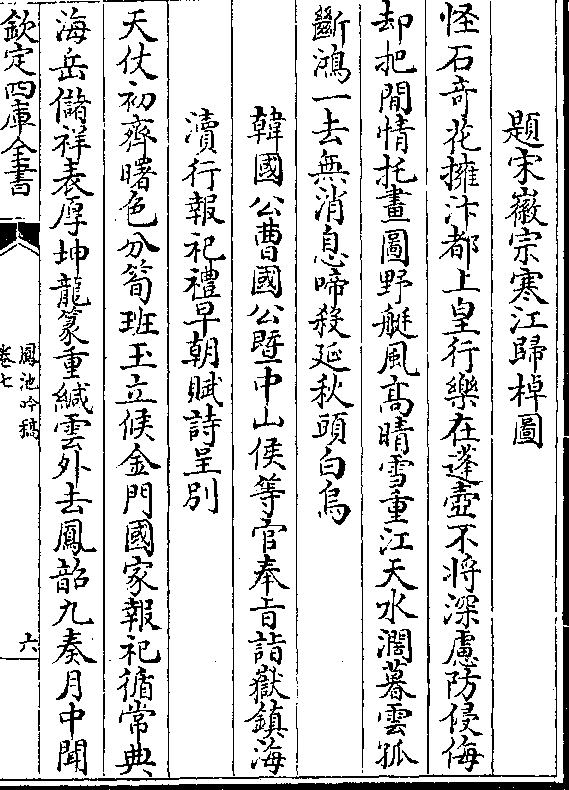 題宋徽宗寒江歸棹圖
怪石奇花擁汴都上皇行樂在蓬壺不將深慮防侵侮
却把閒情托畫圖野艇風高晴雪重江天水濶暮雲孤
斷鴻一去無消息啼殺延秋頭白烏
韓國公曹國公暨中山侯等官奉旨詣嶽鎮海
瀆行報祀禮早朝賦詩呈別
天仗初齊曙色分筍班玉立候金門國家報祀循常典
海岳儲祥表厚坤龍篆重緘雲外去鳳韶九奏月中聞
欽定四庫全書
鳳池吟稿
卷七
六